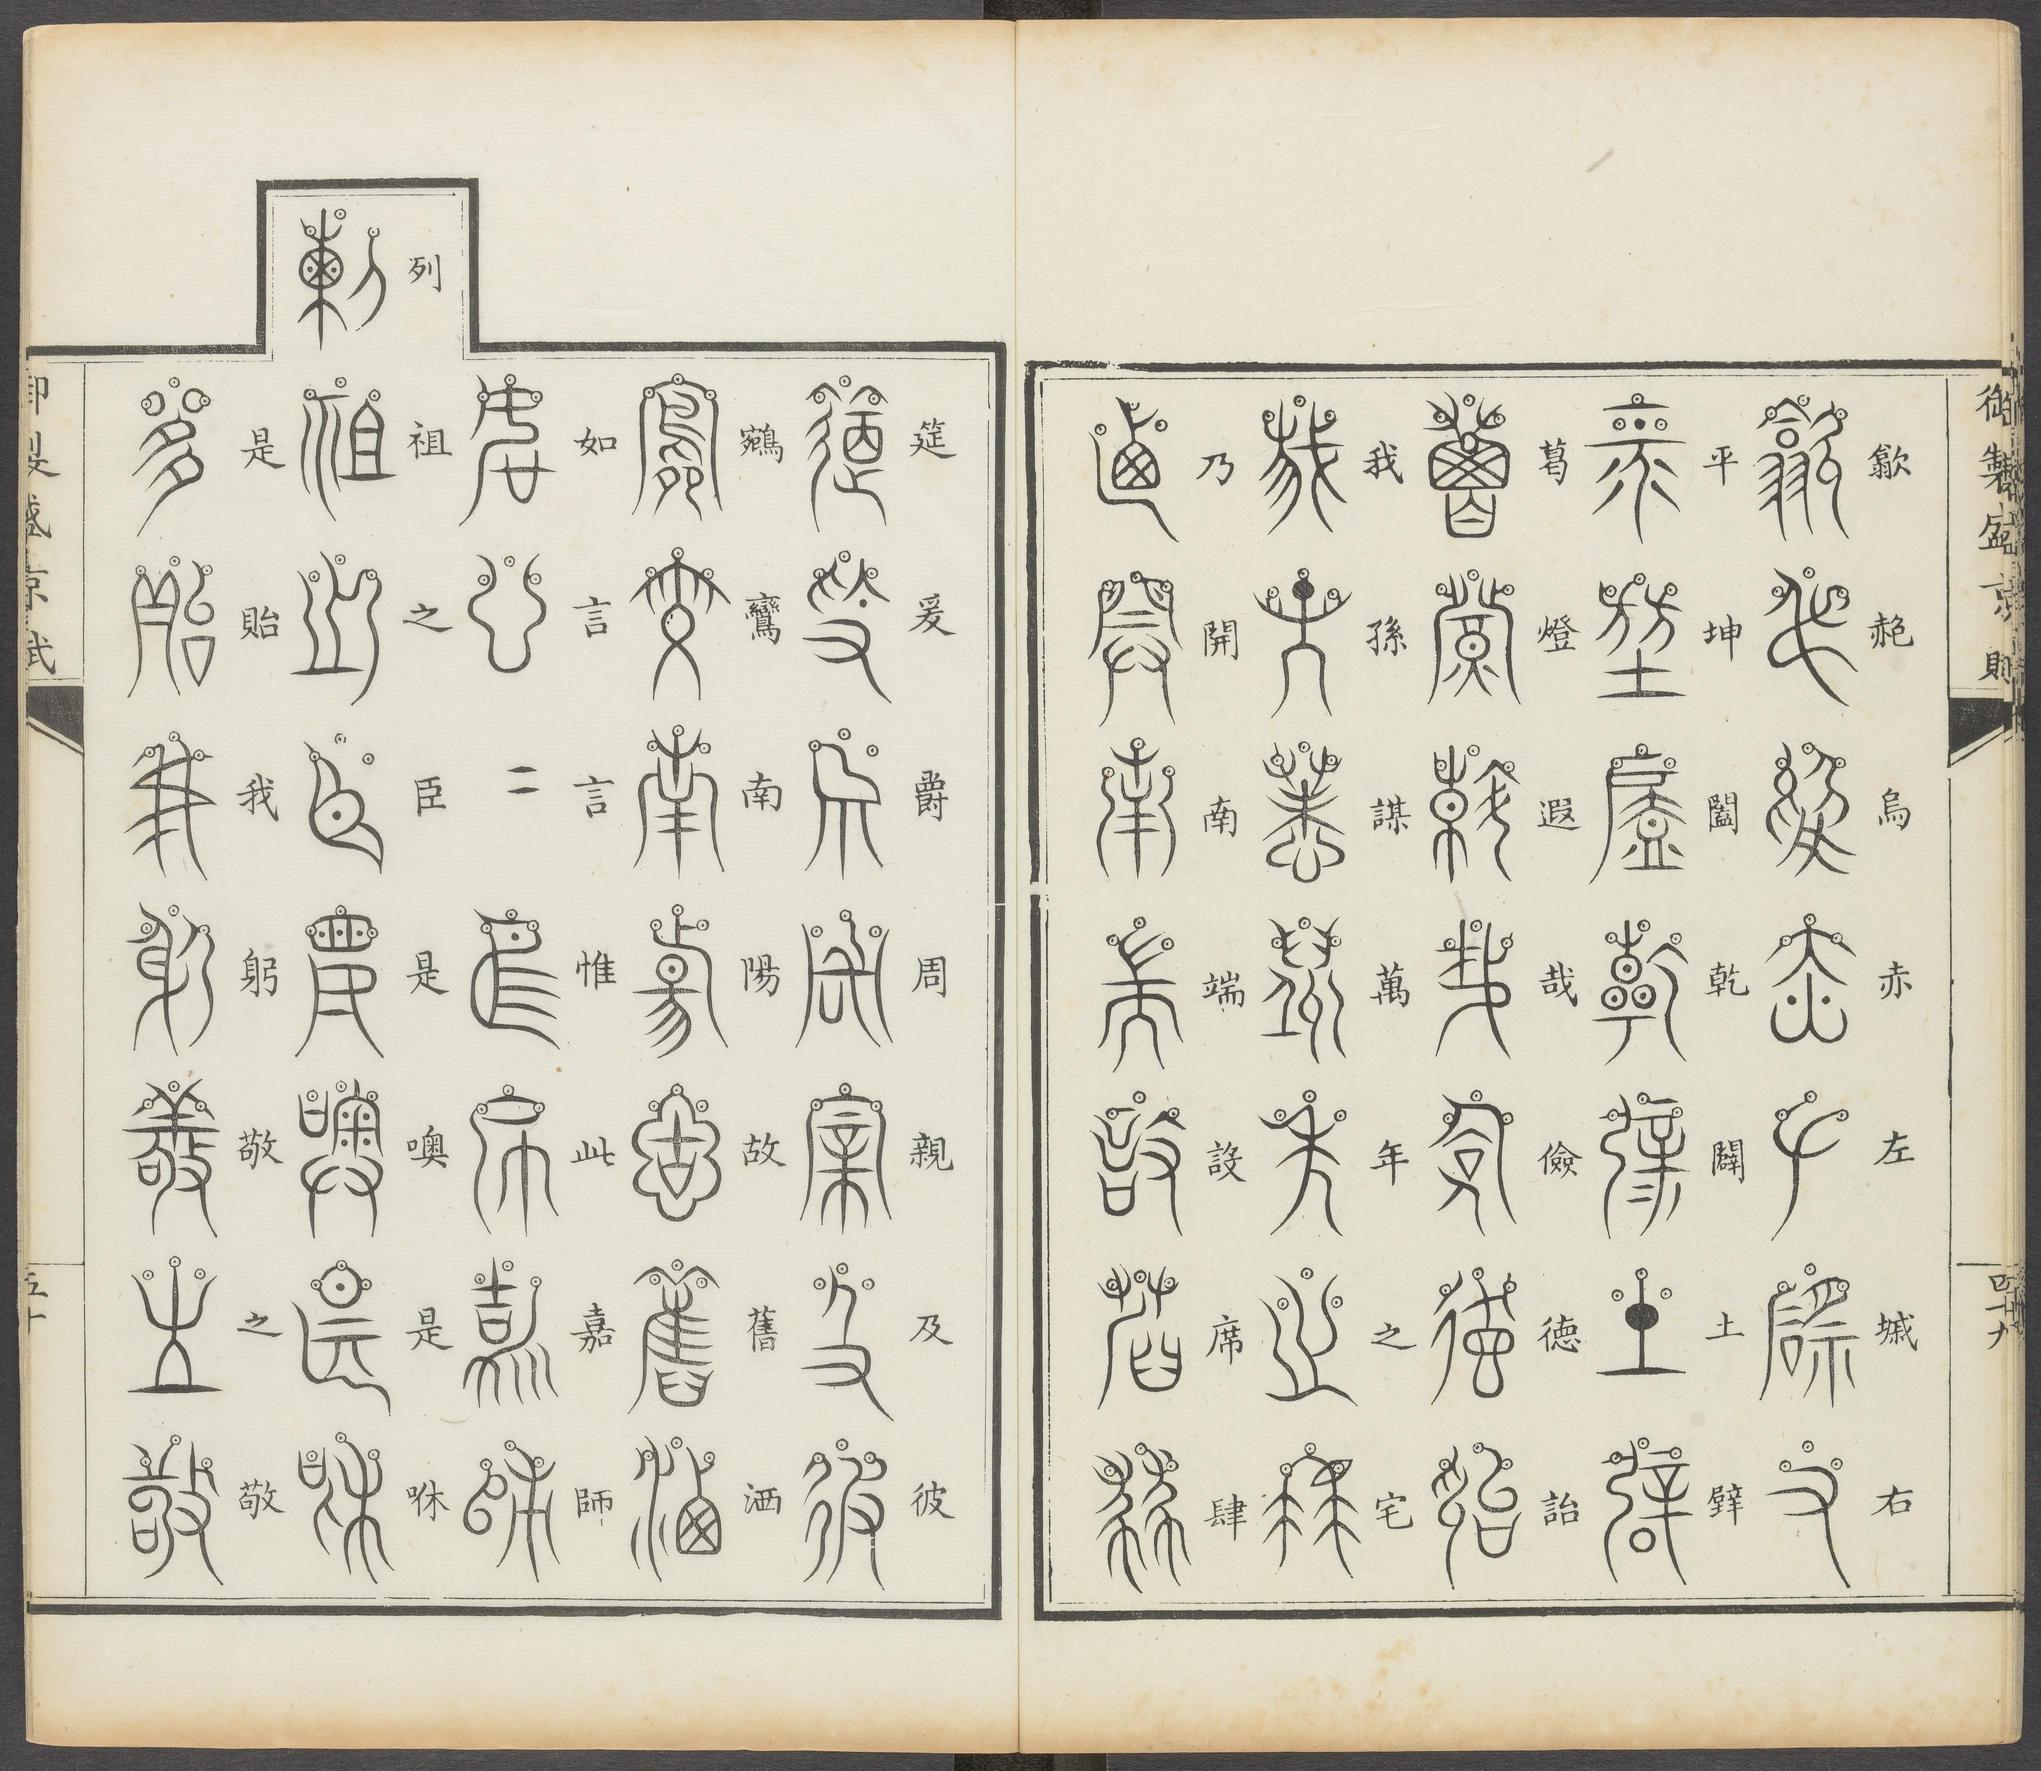 御製盛京賦
四十九
歙赩烏赤左墄右
平坤闔乾闢土辥
葛燈遐哉儉德詒
我孫謀萬年之宅
乃開南端設席肆
筵爰爵周親及彼
鵷鸞南陽故舊洒
如言言惟此嘉師
列祖之臣是噢是咻
是貽我躬敬之敬
御製盛京賦
五十